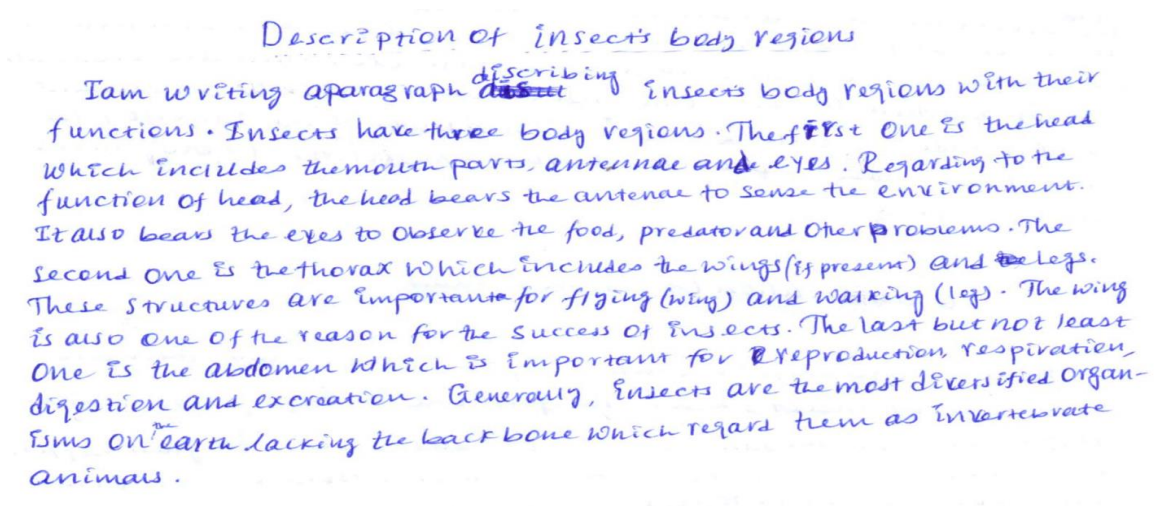 Description of insect's body regions
I am writing a paragraph discribing insects body regions with their
functions. Insects have three body regions. The first one is the head
which includes the mouth parts, antennae and eyes. Regarding to the
function of head, the head bears the antenae to sense the environment.
It also bears the eyes to observe the food, predator and other problems. The
second one is the thorax which includes the wings (if present) and legs.
These structures are important for flying (wing) and walking (leg). The wing
is also one of the reason for the success of insects. The last but not least
one is the abdomen which is important for reproduction, respiration,
digestion and excreation. Generally, insects are the most diversified organ-
isms on the earth lacking the backbone which regard them as invertebrate
animals.